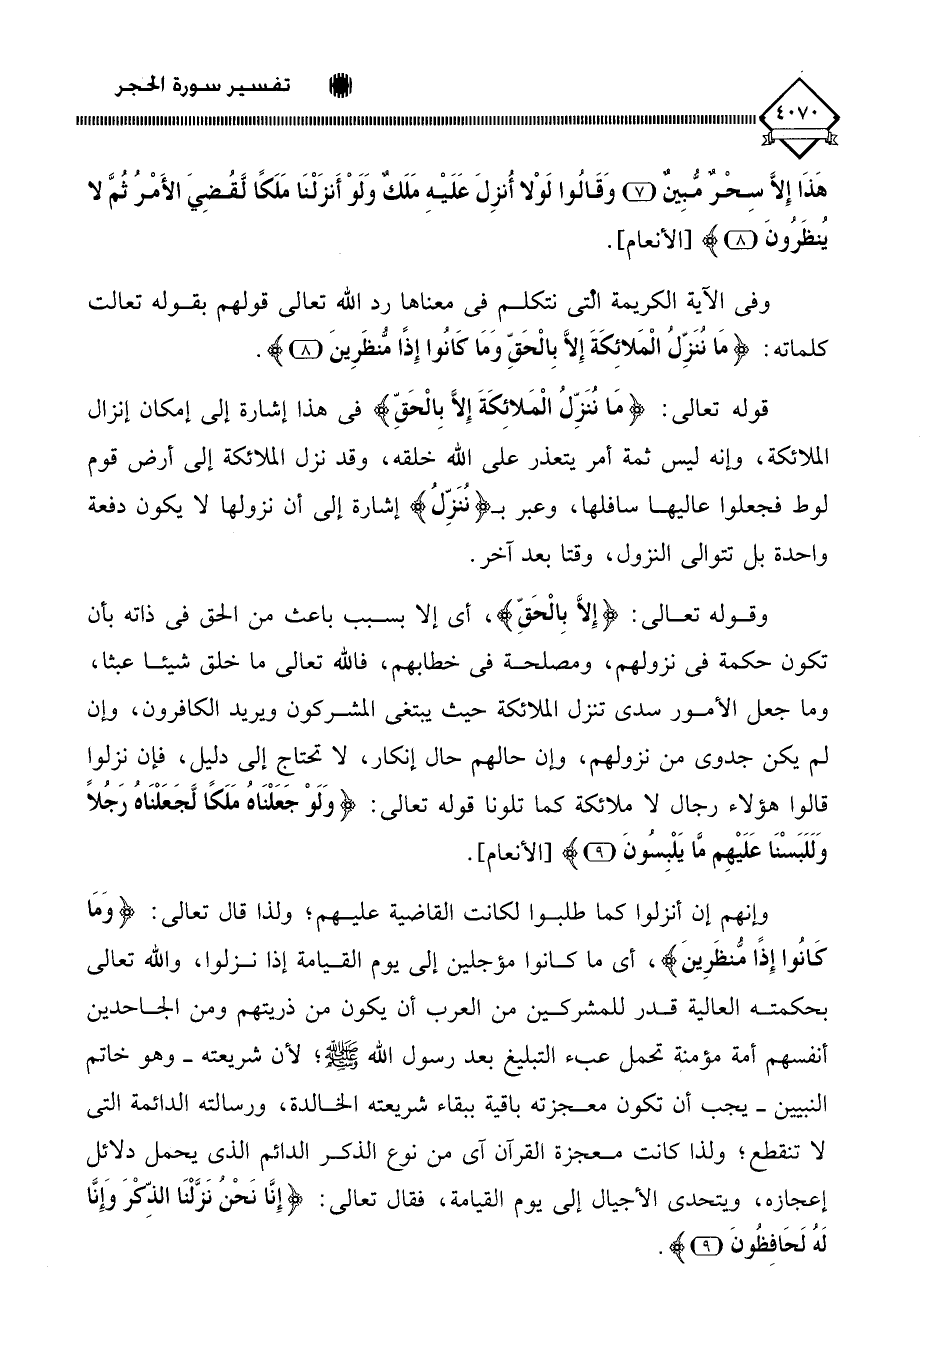 تفسير سورة الحجر
٤٠٧٠
هَذَا إِلاَّ سِحْرٌ مُّبِينٌ (٧) وَقَالُوا لَوْلا أُنزِلَ عَلَيْهِ مَلَكٌ وَلَوْ أَنزَلْنَا مَلَكًا لَّقُضِيَ الأَمْرُ ثُمَّ لا
يُنظَرُونَ (٨)﴾ [الأنعام].
وفى الآية الكريمة التى نتكلم فى معناها رد الله تعالى قولهم بقوله تعالت
كلماته: ﴿مَا نُنَزِّلُ الْمَلائِكَةَ إِلاَّ بِالْحَقِّ وَمَا كَانُوا إِذًا مُّنظَرِينَ (٨)﴾.
قوله تعالى: ﴿مَا نُنَزِّلُ الْمَلائِكَةَ إِلاَّ بِالْحَقِّ﴾ فى هذا إشارة إلى إمكان إنزال
الملائكة، وإنه ليس ثمة أمر يتعذر على الله خلقه، وقد نزل الملائكة إلى أرض قوم
لوط فجعلوا عاليها سافلها، وعبر بـ﴿نُنَزِّلُ﴾ إشارة إلى أن نزولها لا يكون دفعة
واحدة بل تتوالى النزول، وقتا بعد آخر.
وقوله تعالى: ﴿إِلاَّ بِالْحَقِّ﴾، أى إلا بسبب باعث من الحق فى ذاته بأن
تكون حكمة فى نزولهم، ومصلحة فى خطابهم، فالله تعالى ما خلق شيئا عبثا،
وما جعل الأمور سدى تنزل الملائكة حيث يبتغى المشركون ويريد الكافرون، وإن
لم يكن جدوى من نزولهم، وإن حالهم حال إنكار، لا تحتاج إلى دليل، فإن نزلوا
قالوا هؤلاء رجال لا ملائكة كما تلونا قوله تعالى: ﴿وَلَوْ جَعَلْنَاهُ مَلَكًا لَّجَعَلْنَاهُ رَجُلاً
وَلَلَبَسْنَا عَلَيْهِم مَّا يَلْبِسُونَ (٩)﴾ [الأنعام].
وإنهم إن أنزلوا كما طلبوا لكانت القاضية عليهم؛ ولذا قال تعالى: ﴿وَمَا
كَانُوا إِذًا مُّنظَرِينَ﴾، أى ما كانوا مؤجلين إلى يوم القيامة إذا نزلوا، والله تعالى
بحكمته العالية قدر للمشركين من العرب أن يكون من ذريتهم ومن الجاحدين
أنفسهم أمة مؤمنة تحمل عبء التبليغ بعد رسول الله ﷺ؛ لأن شريعته - وهو خاتم
النبيين - يجب أن تكون معجزته باقية ببقاء شريعته الخالدة، ورسالته الدائمة التى
لا تنقطع؛ ولذا كانت معجزة القرآن آى من نوع الذكر الدائم الذى يحمل دلائل
إعجازه، ويتحدى الأجيال إلى يوم القيامة، فقال تعالى: ﴿إِنَّا نَحْنُ نَزَّلْنَا الذِّكْرَ وَإِنَّا
لَهُ لَحَافِظُونَ (٩)﴾.